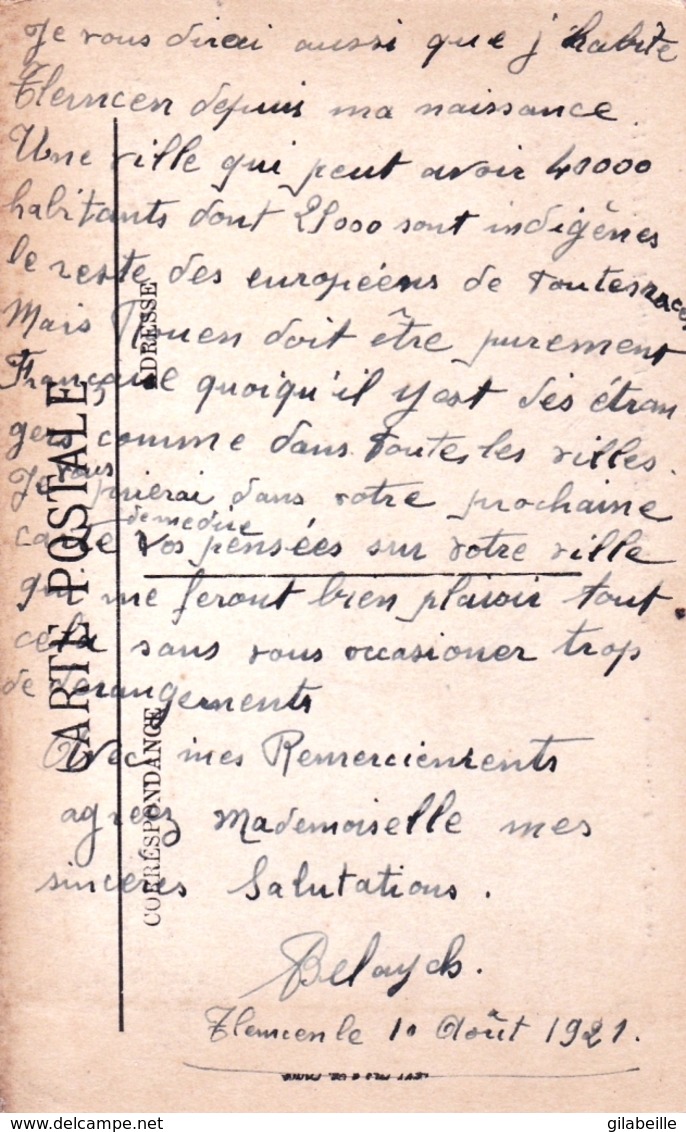 Je vous dirai aussi que j'habite
Tlemcen depuis ma naissance.
Une ville qui peut avoir 41000
habitants dont 21000 sont indigènes
le reste des européens de toutes races
Mais Rouen doit être purement
Française quoiqu'il y est des étran
gers comme dans toutes les villes.
Je vous prierai dans votre prochaine
carte de me dire vos pensées sur votre ville
qui me feront bien plaisir tout
cela sans vous occasioner trop
de derangements
Avec mes Remerciements
agréez Mademoiselle mes
sincères Salutations.
Belaych.
Tlemcen le 10 Août 1921.
CARTE POSTALE
CORRESPONDANCE
ADRESSE
©gilabeille